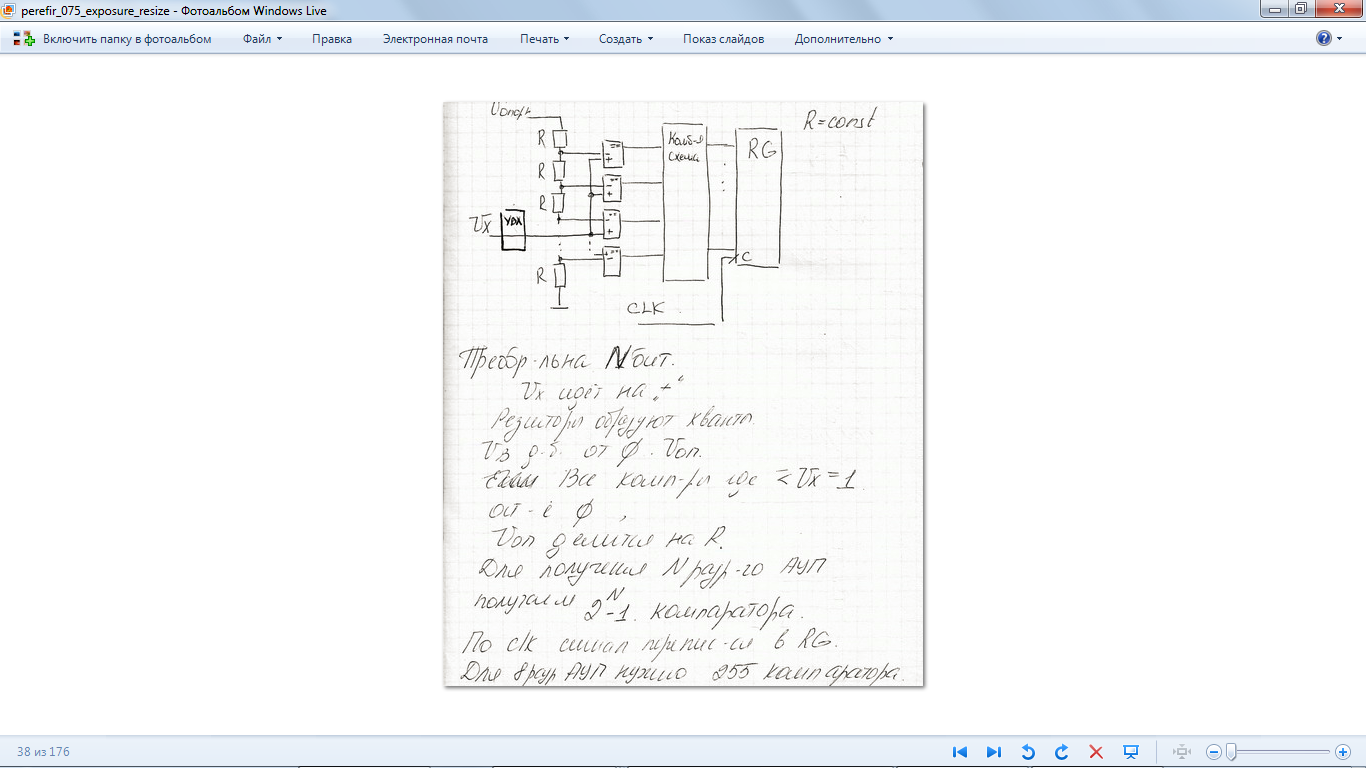 perefir_075_exposure_resize - Фотоальбом Windows Live
Включить папку в фотоальбом Файл Правка Электронная почта Печать Создать Показ слайдов Дополнительно
R=const
R
R
R
R
== - +
== - +
- +
+ ==
Комб-я
схема
RG
Ux
УВХ
C
CLK
Преобр-ль на N бит.
Ux идёт на "+"
Резисторы образуют кванты
д.б. от 0 Uоп.
Все комп-ры где ≤ Ux = 1
ост-е 0,
Uоп делится на R.
Для получения N разр-го АЦП
получаем 2^N-1 компаратора.
По clk сигнал перепис-ся в RG.
Для 8 разр АЦП нужно 255 компаратора.
38 из 176